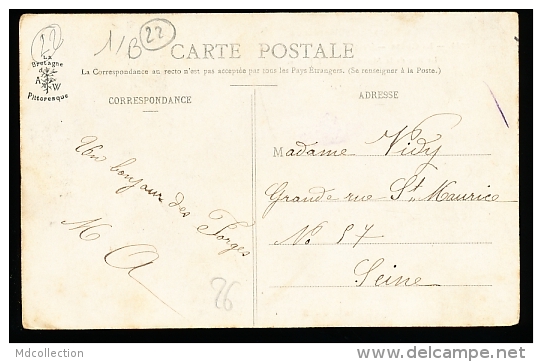 22
1/B 22
CARTE POSTALE
La Correspondance au recto n'est pas acceptée par tous les Pays Étrangers. (Se renseigner à la Poste.)
La
Bretagne
A W
Pittoresque
CORRESPONDANCE
ADRESSE
Un bonjour des Forges
M A
26
Madame Vidy
Grande rue St Maurice
No 57
Seine
Mdcollection
delcampe.net